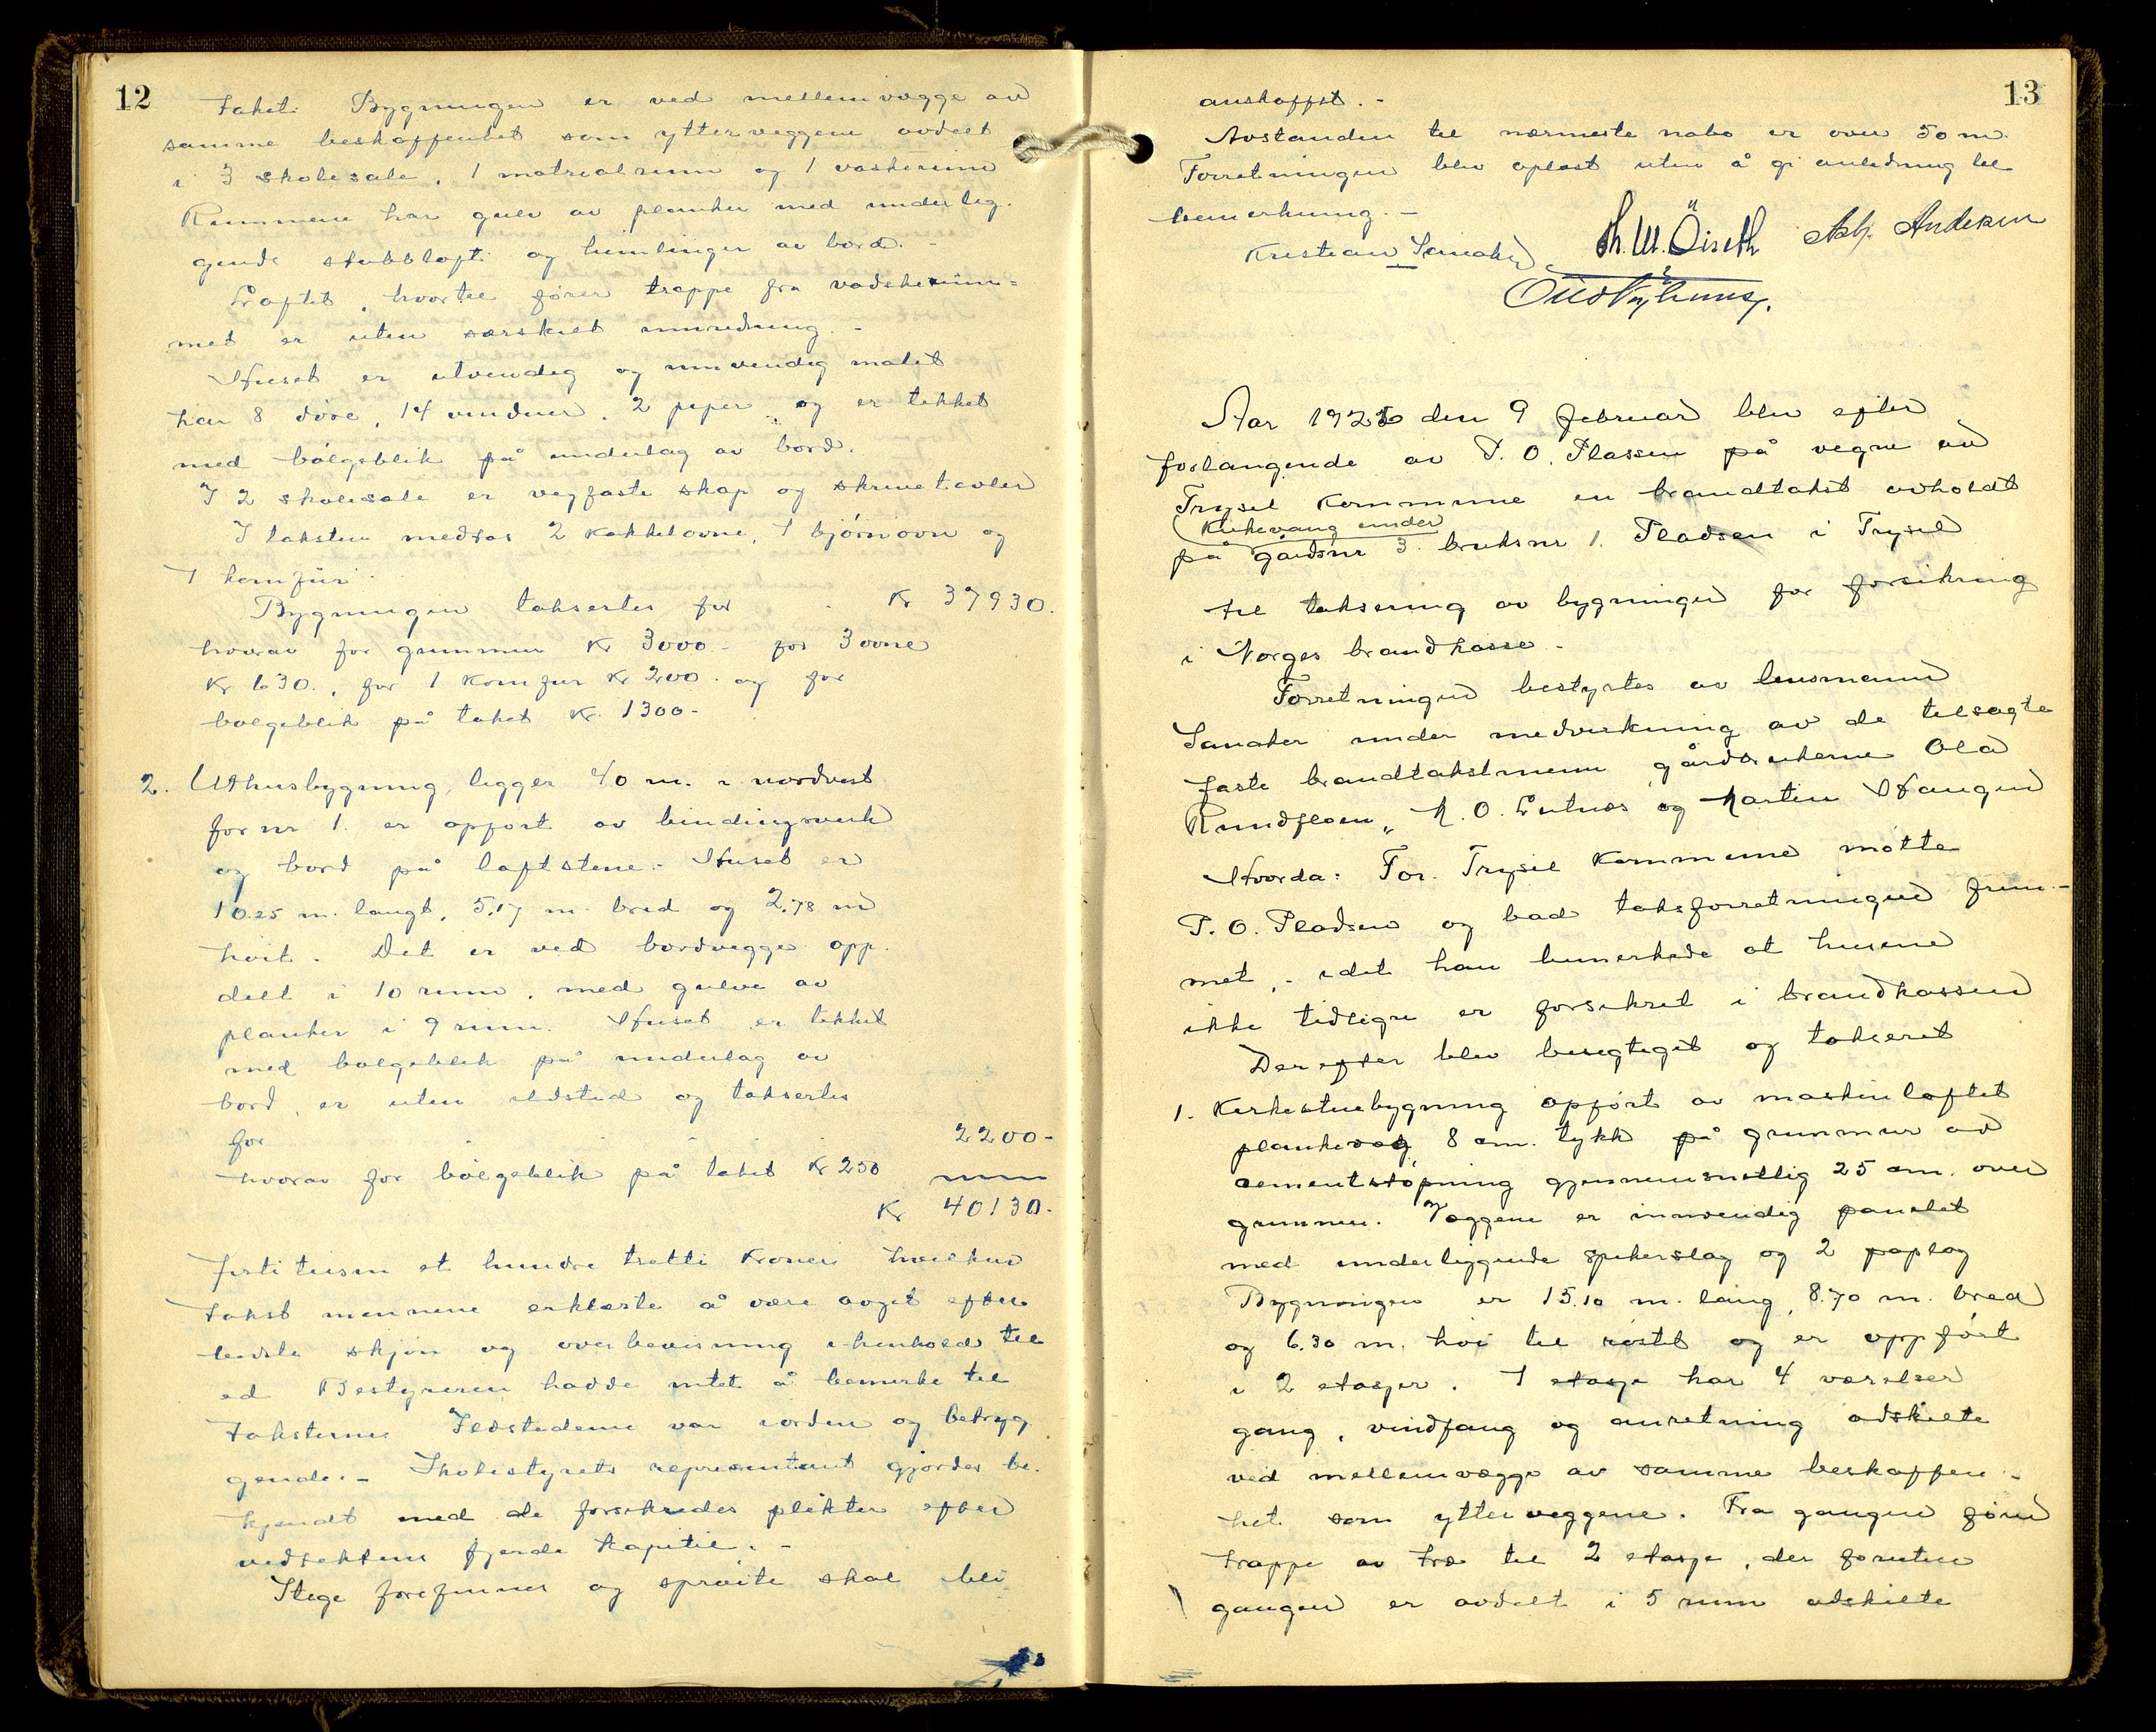 12
taket. Bygningen er ved mellemvægge av
samme beskaffenhet som ytterveggene avdelt
i 3 skolesale, 1 matrialrum og 1 vaskerum
Rummene har gulv av planker med underlig-
gende stubbloft og himlinger av bord. -
Loftet, hvortil fører trappe fra vadskerum-
met er uten særskilt innredning. -
Huset er utvendig og innvendig malet
har 8 döre, 14 vinduer, 2 piper og er tekket
med bölgeblik på underlag av bord.
I 2 skolesale er vegfaste skap og skrivetavler
I taksten medtas 2 kakkelovne, 1 björnovn og
1 komfür.
Bygningen takseres for Kr 37930.
hvorav for grunmur Kr 3000.- for 3 ovne
Kr 630., for 1 komfur Kr 200. og for
bølgeblik på taket Kr. 1300-
2. Uthusbygning, ligger 40 m. i nordvest
for nr 1. er opført av bindingsverk
og bord på loftstene.- Huset er
10.25 m. langt, 5,17 m. bred og 2,78 m
höit. Det er ved bordvegge opp-
delt i 10 rum, med gulve av
planker i 9 rum. Huset er tekket
med bølgeblik på underlag av
bord, er uten ildsted og takseres
for 2200-
hvorav for bölgeblik på taket Kr 250
Kr 40130.-
firti tusen et hundre tretti kroner hvilken
takst mennene erklærte å være avgit efter
bedste skjøn og overbevisning i henhold til
ed Bestyreren hadde intet å bemerke til
taksterne Ildstedene var i orden og betryg-
gende.- Skolestyrets representant gjordes be-
kjendt med de forsikredes plikter efter
vedtektens fjerde kapitel. -
Stige forefinnes og sprøite skal bli
13
anskaffet. -
Avstanden til nærmeste nabo er over 50 m.
Forretningen blev oplæst uten å gi anledning til
bemerkning. -
Kristian Sanaker Th. M. Öiseth Asbj. Andersen
Aar 1926 den 9 februar blev efter
forlangende av P. O. Plassen på vegne av
Trysil kommune en brandtakst avholdt
Kirkevang under
på gårdsnr 3. bruksnr 1. Pladsen i Trysil
til taksering av bygninger for forsikring
i Norges brandkasse -
Forretningen bestyrtes av lensmann
Sanaker under medvirkning av de tilsagte
faste brandtakstmenn gårdbrukerne Ola
Rundfloen, M. O. Lutnæs og Martin Haugen
Hvorda: For Trysil kommune møtte
P. O. Pladsen og bad taksforretningen frem-
met, - idet han bemerkede at husene
ikke tidligre er forsikret i brandkassen
Derefter blev besigtiget og takseret
1. Kirkestuebygning opført av maskinlaftet
plankevæg, 8 cm. tykk på grunmur av
cementstöpning gjennemsnitlig 25 cm. over
grunnen. Væggene er innvendig panelet
med underliggende spikerslag og 2 paplag
Bygningen er 15.10 m. lang, 8.70 m. bred
og 6.30 m. höi til röstet og er oppfört
i 2 etasjer. 1 etasje har 4 værelser
gang, vindfang og anretning adskilte
ved mellemvægge av samme beskaffen-
het som ytterveggene. Fra gangen förer
trappe av træ til 2 etasje, der foruten
gangen er avdelt i 5 rum adskilte